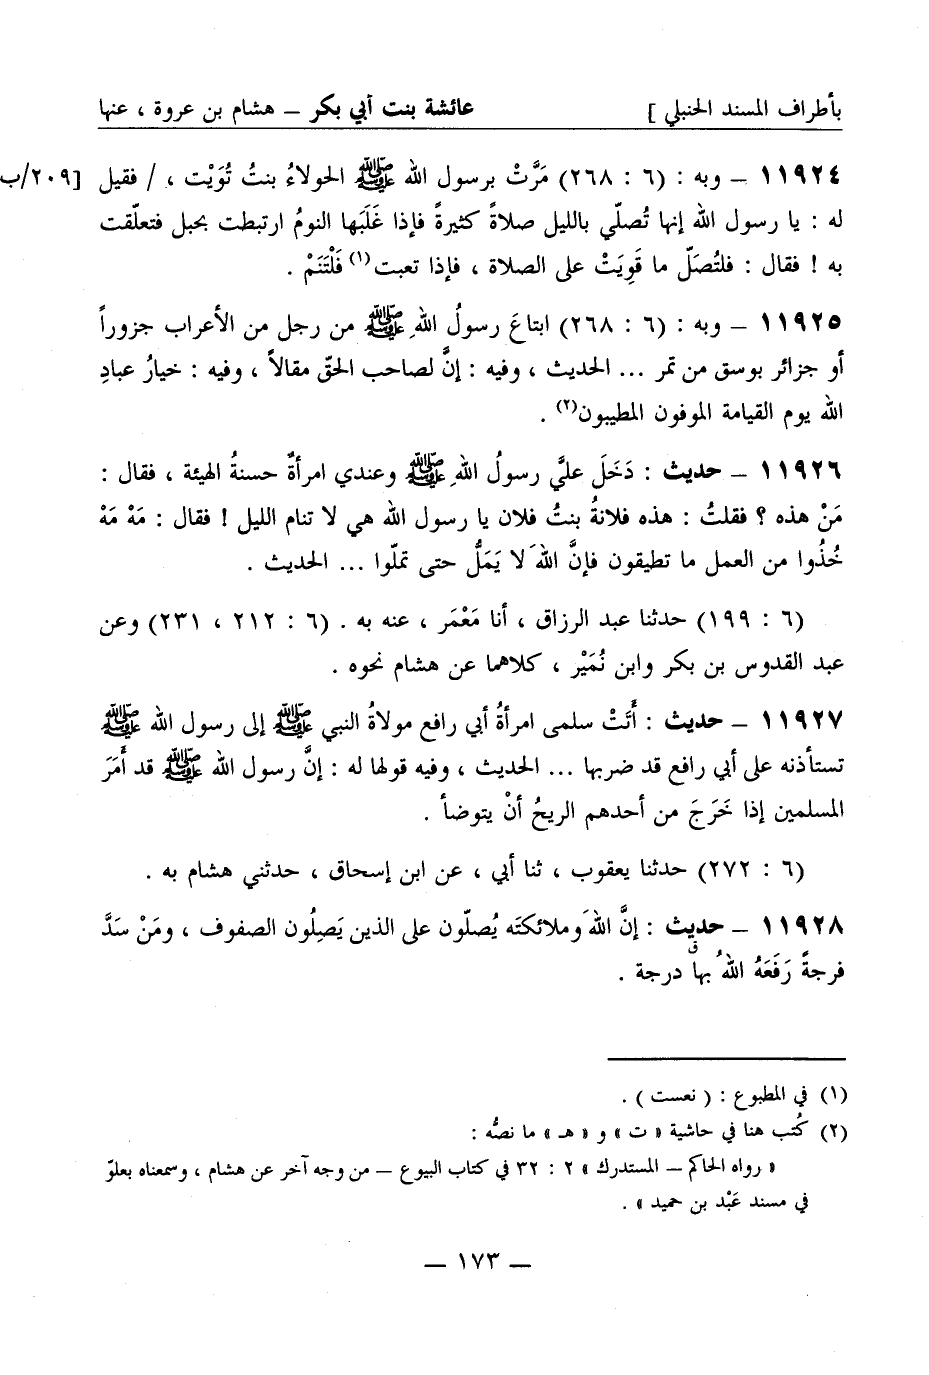 بأطراف المسند الحنبلي ] عائشة بنت أبي بكر ــ هشام بن عروة ، عنها
١١٩٢٤ ــ وبه : (٦ : ٢٦٨) مَرَّتْ برسول الله ﷺ الحولاءُ بنتُ تُوَيْت ، / فقيل [٢٠٩/ب
له : يا رسول الله إنها تُصلّي بالليل صلاةً كثيرةً فإذا غَلَبَها النومُ ارتبطت بحبل فتعلّقت
به ! فقال : فلتُصَلّ ما قَوِيَتْ على الصلاة ، فإذا تعبت(١) فَلْتَنَمْ .
١١٩٢٥ ــ وبه : (٦ : ٢٦٨) ابتاعَ رسولُ اللهِ ﷺ من رجل من الأعراب جزوراً
أو جزائر بوسق من تمر ... الحديث ، وفيه : إنَّ لصاحب الحقّ مقالاً ، وفيه : خيارُ عبادِ
الله يوم القيامة الموفون المطيبون(٢) .
١١٩٢٦ ــ حديث : دَخَلَ عليَّ رسولُ اللهِ ﷺ وعندي امرأةٌ حسنةُ الهيئة ، فقال :
مَنْ هذه ؟ فقلتُ : هذه فلانةُ بنتُ فلان يا رسول الله هي لا تنام الليل ! فقال : مَهْ مَهْ
خُذُوا من العمل ما تطيقون فإنَّ اللهَ لا يَمَلُّ حتى تملّوا ... الحديث .
(٦ : ١٩٩) حدثنا عبد الرزاق ، أنا مَعْمَر ، عنه به . (٦ : ٢١٢ ، ٢٣١) وعن
عبد القدوس بن بكر وابن نُمَيْر ، كلاهما عن هشام نحوه .
١١٩٢٧ ــ حديث : أَتَتْ سلمى امرأةُ أبي رافع مولاةُ النبي ﷺ إلى رسول الله ﷺ
تستأذنه على أبي رافع قد ضربها ... الحديث ، وفيه قولها له : إنَّ رسول الله ﷺ قد أَمَرَ
المسلمين إذا خَرَجَ من أحدهم الريحُ أنْ يتوضأ .
(٦ : ٢٧٢) حدثنا يعقوب ، ثنا أبي ، عن ابن إسحاق ، حدثني هشام به .
١١٩٢٨ ــ حديث : إنَّ اللهَ وملائكتَه يُصلّون على الذين يَصِلُون الصفوف ، ومَنْ سَدَّ
فرجةً رَفَعَهُ اللهُ بها ق درجة .
(١) في المطبوع : ( نعست ) .
(٢) كُتب هنا في حاشية « ت » و « هـ » ما نصُّه :
« رواه الحاكم ــ المستدرك » ٢ : ٣٢ في كتاب البيوع ــ من وجه آخر عن هشام ، وسمعناه بعلوّ
في مسند عَبْد بن حميد » .
ــ ١٧٣ ــ